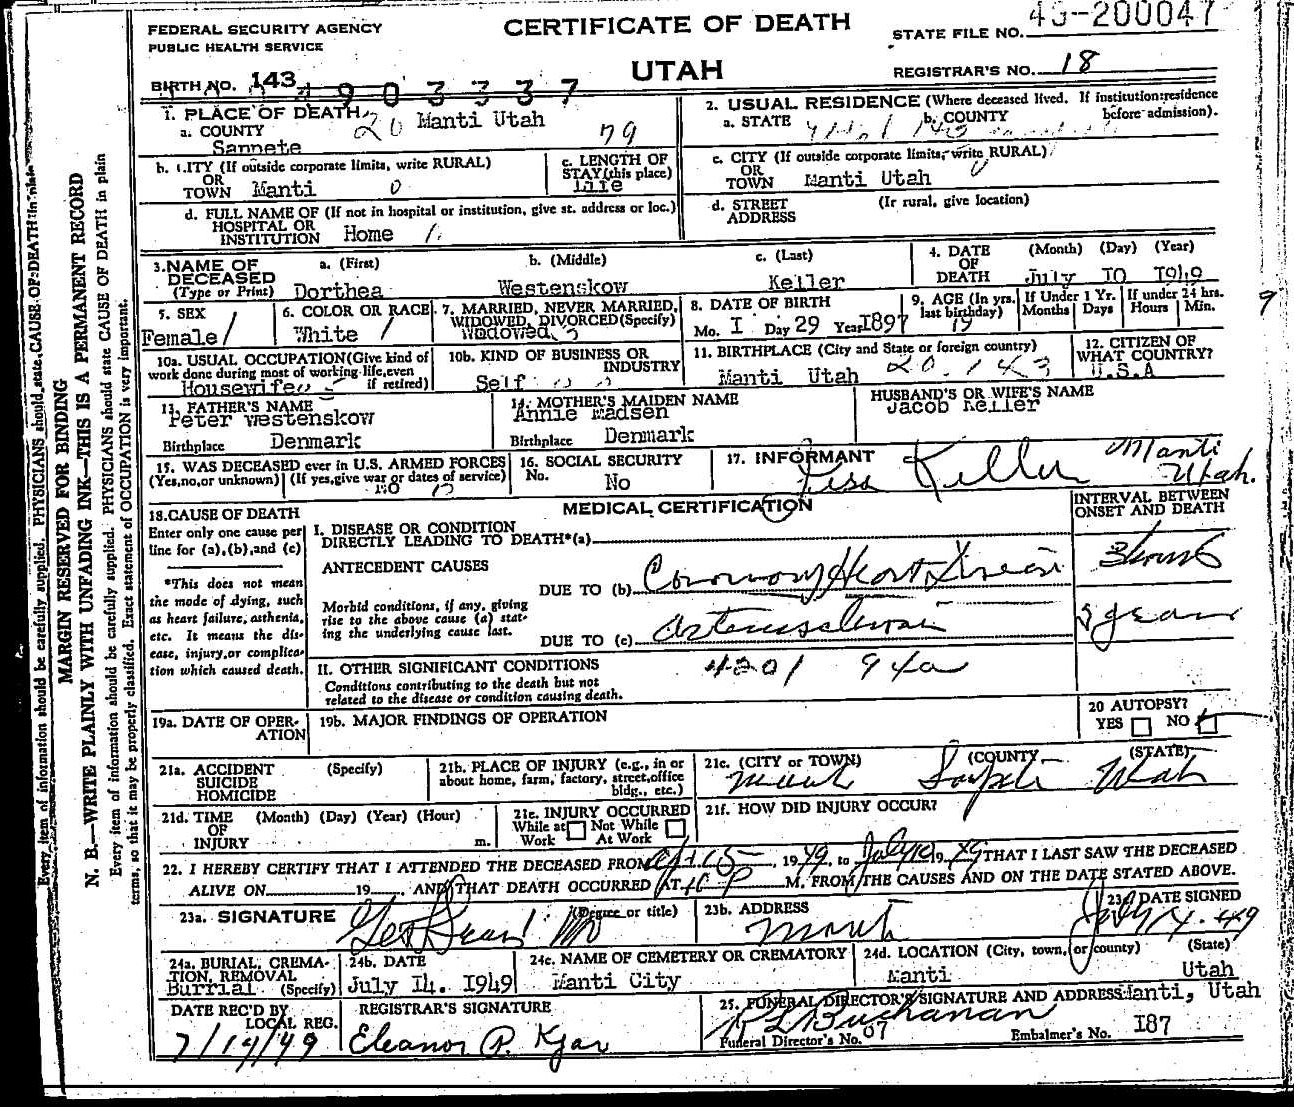 FEDERAL SECURITY AGENCY
PUBLIC HEALTH SERVICE
CERTIFICATE OF DEATH
UTAH
STATE FILE NO. 49-200047
REGISTRAR'S NO. 18
BIRTH NO. 143
4903337
1. PLACE OF DEATH 20 Manti Utah
a. COUNTY
Sanpete 79
2. USUAL RESIDENCE (Where deceased lived. If institution: residence before admission).
a. STATE b. COUNTY
b. CITY (If outside corporate limits, write RURAL)
OR
TOWN Manti 0
c. LENGTH OF
STAY (this place)
Life
c. CITY (If outside corporate limits, write RURAL)
OR
TOWN Manti Utah
d. FULL NAME OF (If not in hospital or institution, give st. address or loc.)
HOSPITAL OR
INSTITUTION Home
d. STREET (If rural, give location)
ADDRESS
3. NAME OF DECEASED (Type or Print)
a. (First) b. (Middle) c. (Last)
Dorthea Westenskow Keller
4. DATE OF DEATH (Month) (Day) (Year)
July 10 1949
5. SEX
Female
6. COLOR OR RACE
White
7. MARRIED, NEVER MARRIED,
WIDOWED, DIVORCED (Specify)
Wodowed
8. DATE OF BIRTH
Mo. I Day 29 Year
9. AGE (In yrs. last birthday)
If Under 1 Yr. Months Days
If under 24 hrs. Hours Min.
9
10a. USUAL OCCUPATION (Give kind of
work done during most of working life, even
if retired)
Housewife
10b. KIND OF BUSINESS OR
INDUSTRY
Self
11. BIRTHPLACE (City and State or foreign country)
Manti Utah 20.143
12. CITIZEN OF
WHAT COUNTRY?
U.S.A
13. FATHER'S NAME
Peter Westenskow
Birthplace Denmark
14. MOTHER'S MAIDEN NAME
Annie Madsen
Birthplace Denmark
HUSBAND'S OR WIFE'S NAME
Jacob Keller
15. WAS DECEASED ever in U.S. ARMED FORCES
(Yes, no, or unknown) (If yes, give war or dates of service)
no
16. SOCIAL SECURITY
No. No
17. INFORMANT
Keller Manti
Utah.
MEDICAL CERTIFICATION
INTERVAL BETWEEN
ONSET AND DEATH
18. CAUSE OF DEATH
Enter only one cause per
line for (a), (b), and (c)
*This does not mean
the mode of dying, such
as heart failure, asthenia,
etc. It means the dis-
ease, injury, or complica-
tion which caused death.
I. DISEASE OR CONDITION
DIRECTLY LEADING TO DEATH*(a)
ANTECEDENT CAUSES
DUE TO (b) Coronary Heart Disease
Morbid conditions, if any, giving
rise to the above cause (a) stat-
ing the underlying cause last.
DUE TO (c) Arteriosclerosis
years
II. OTHER SIGNIFICANT CONDITIONS 4201 94a
Conditions contributing to the death but not
related to the disease or condition causing death.
19a. DATE OF OPER-
ATION
19b. MAJOR FINDINGS OF OPERATION
20 AUTOPSY?
YES NO
21a. ACCIDENT (Specify)
SUICIDE
HOMICIDE
21b. PLACE OF INJURY (e.g., in or
about home, farm, factory, street, office
bldg., etc.)
21c. (CITY or TOWN) (COUNTY) (STATE)
Manti Sanpete Utah
21d. TIME (Month) (Day) (Year) (Hour)
OF
INJURY m.
21e. INJURY OCCURRED
While at Work Not While At Work
21f. HOW DID INJURY OCCUR?
22. I HEREBY CERTIFY THAT I ATTENDED THE DECEASED FROM 15 1949, to July 10 1949 THAT I LAST SAW THE DECEASED
ALIVE ON 19 , AND THAT DEATH OCCURRED AT P M. FROM THE CAUSES AND ON THE DATE STATED ABOVE.
23a. SIGNATURE (Degree or title)
MD
23b. ADDRESS
Manti
23c. DATE SIGNED
July 14-49
24a. BURIAL, CREMA-
TION, REMOVAL
Burrial (Specify)
24b. DATE
July 14. 1949
24c. NAME OF CEMETERY OR CREMATORY
Manti City
24d. LOCATION (City, town, or county) (State)
Manti Utah
DATE REC'D BY
LOCAL REG.
7/14/49
REGISTRAR'S SIGNATURE
Eleanor P. Kjar
25. FUNERAL DIRECTOR'S SIGNATURE AND ADDRESS Manti, Utah
Buchanan
Funeral Director's No. 67 Embalmer's No. 187
Every item of information should be carefully supplied. PHYSICIANS should state CAUSE OF DEATH in plain
MARGIN RESERVED FOR BINDING
N. B.—WRITE PLAINLY WITH UNFADING INK—THIS IS A PERMANENT RECORD
Every item of information should be carefully supplied. PHYSICIANS should state CAUSE OF DEATH in plain
terms, so that it may be properly classified. Exact statement of OCCUPATION is very important.